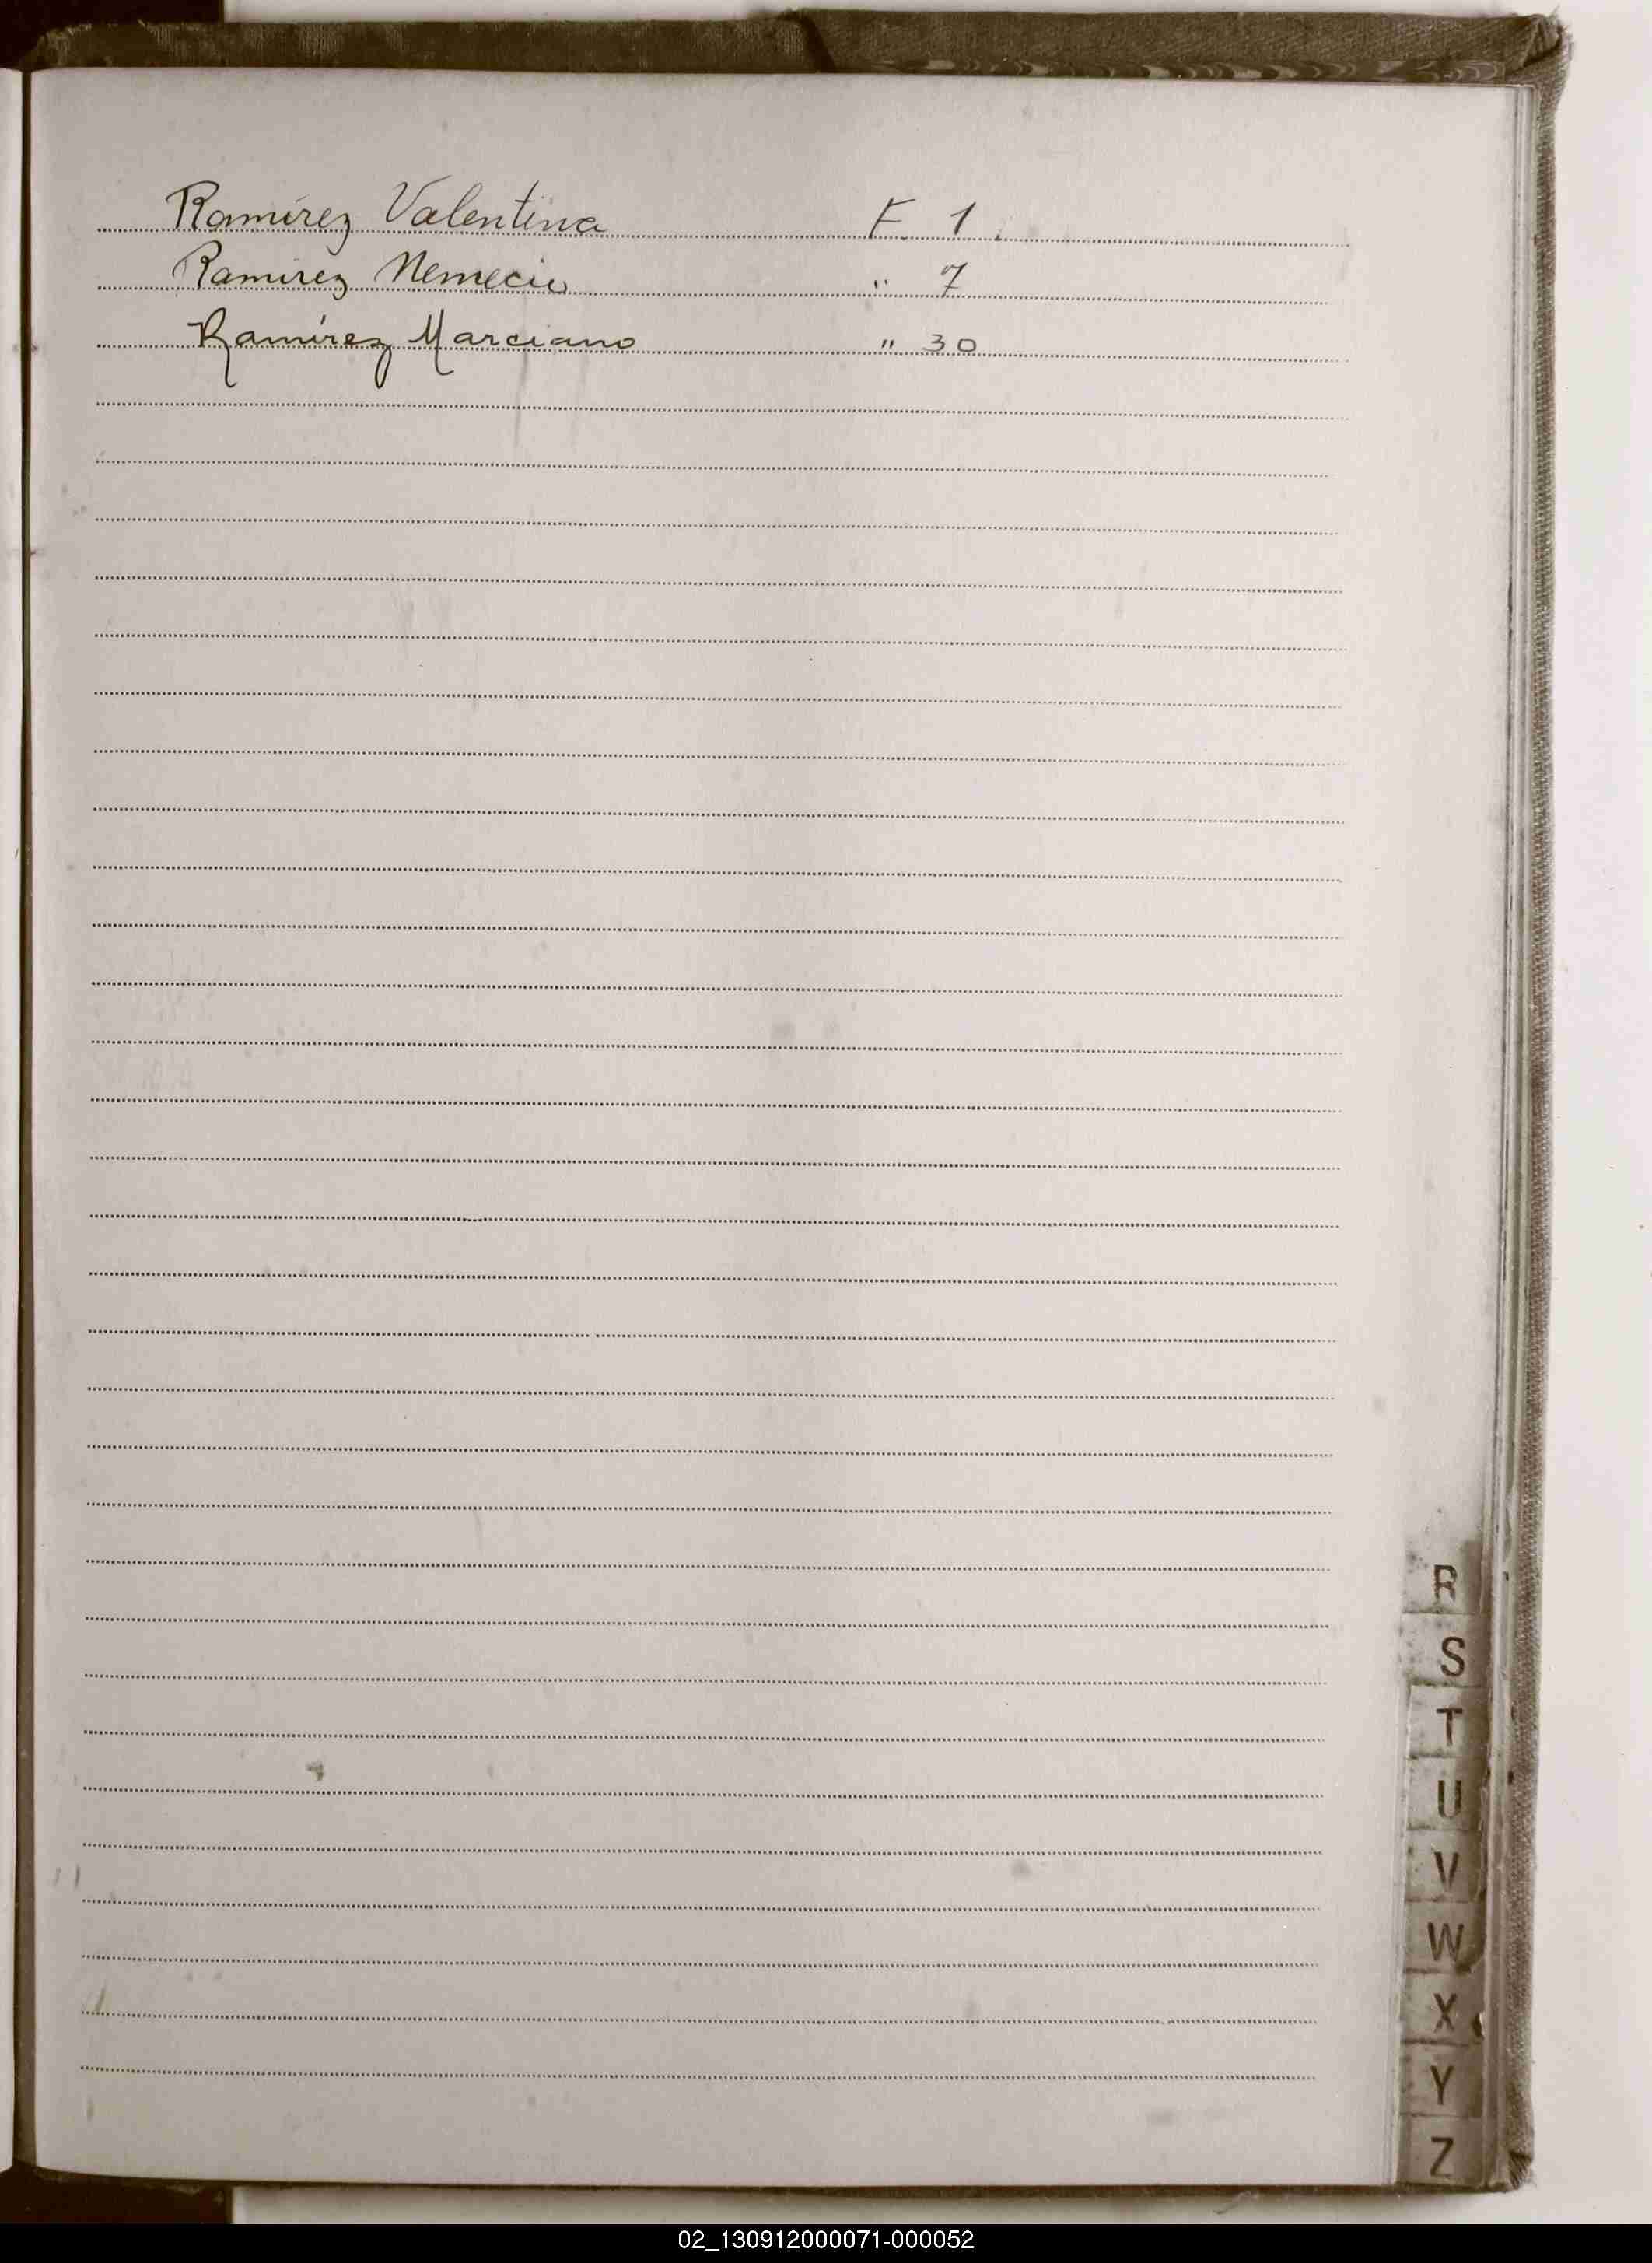 Ramírez Valentina F. 1.
Ramirez Nemecio " 7
Ramírez Marciano " 30
R
S
T
U
V
W
X
Y
Z
02_130912000071-000052